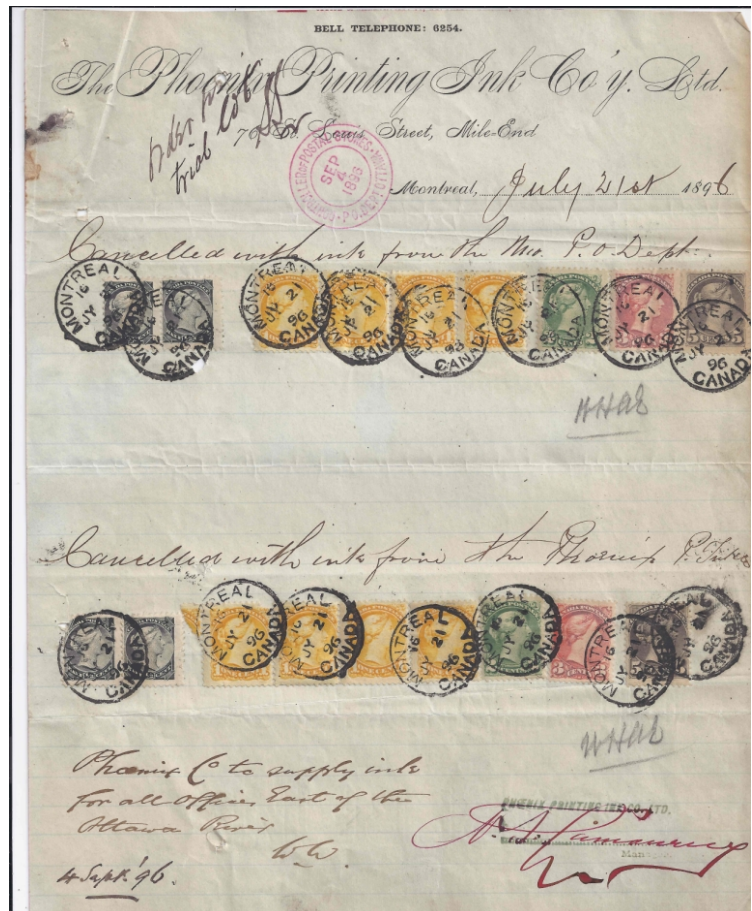 BELL TELEPHONE: 6254.
The Phoenix Printing Ink Co'y. Ltd.
St. Louis Street, Mile-End
trial
CONTROLLER OF POSTAL STORES
SEP
4
1896
Montreal, July 21st 1896
Cancelled with ink from the P.O. Dept.
MONTREAL 16 JY 21 96 CANADA
MONTREAL 16 JY 21 96 CANADA
MONTREAL 16 JY 21 96 CANADA
MONTREAL 16 JY 21 96 CANADA
MONTREAL 16 JY 21 96 CANADA
MONTREAL 16 JY 21 96 CANADA
MONTREAL 16 JY 21 96 CANADA
MONTREAL 16 JY 21 96 CANADA
Cancelled with ink from the Phoenix P.
MONTREAL 16 JY 21 96 CANADA
MONTREAL 16 JY 21 96 CANADA
MONTREAL 16 JY 21 96 CANADA
MONTREAL 16 JY 21 96 CANADA
MONTREAL 16 JY 21 96 CANADA
MONTREAL 16 JY 21 96 CANADA
MONTREAL 16 JY 21 96 CANADA
Phoenix Co to supply ink
for all offices East of the
Ottawa River
W.W.
4 Sept. '96.
PHOENIX PRINTING INK CO. LTD.